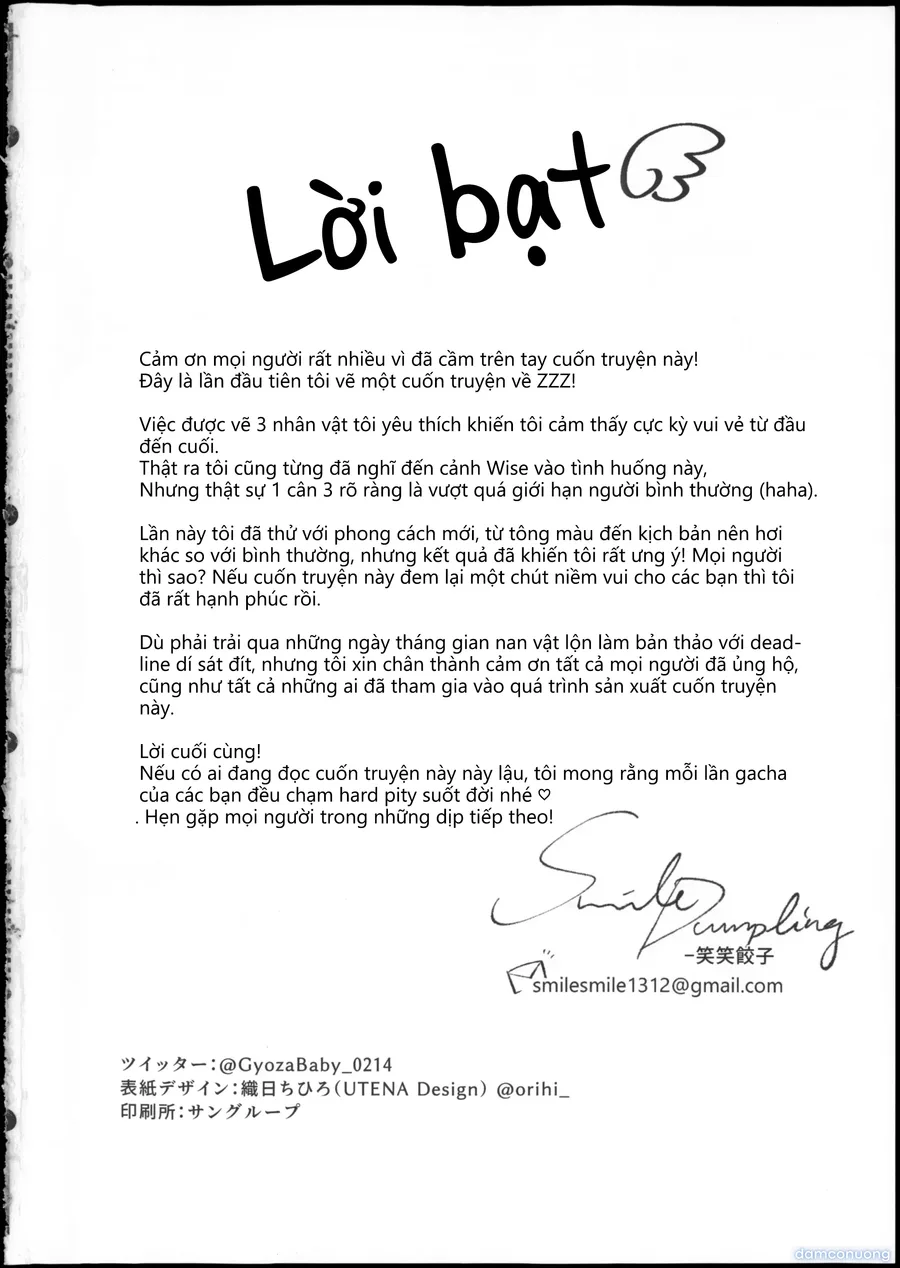 Lời bạt
Cảm ơn mọi người rất nhiều vì đã cầm trên tay cuốn truyện này!
Đây là lần đầu tiên tôi vẽ một cuốn truyện về ZZZ!
Việc được vẽ 3 nhân vật tôi yêu thích khiến tôi cảm thấy cực kỳ vui vẻ từ đầu
đến cuối.
Thật ra tôi cũng từng đã nghĩ đến cảnh Wise vào tình huống này,
Nhưng thật sự 1 cân 3 rõ ràng là vượt quá giới hạn người bình thường (haha).
Lần này tôi đã thử với phong cách mới, từ tông màu đến kịch bản nên hơi
khác so với bình thường, nhưng kết quả đã khiến tôi rất ưng ý! Mọi người
thì sao? Nếu cuốn truyện này đem lại một chút niềm vui cho các bạn thì tôi
đã rất hạnh phúc rồi.
Dù phải trải qua những ngày tháng gian nan vật lộn làm bản thảo với dead-
line dí sát đít, nhưng tôi xin chân thành cảm ơn tất cả mọi người đã ủng hộ,
cũng như tất cả những ai đã tham gia vào quá trình sản xuất cuốn truyện
này.
Lời cuối cùng!
Nếu có ai đang đọc cuốn truyện này này lậu, tôi mong rằng mỗi lần gacha
của các bạn đều chạm hard pity suốt đời nhé ♡
. Hẹn gặp mọi người trong những dịp tiếp theo!
Smile Dumpling
-笑笑餃子
smilesmile1312@gmail.com
ツイッター：@GyozaBaby_0214
表紙デザイン：織日ちひろ（UTENA Design） @orihi_
印刷所：サングループ
damconuong